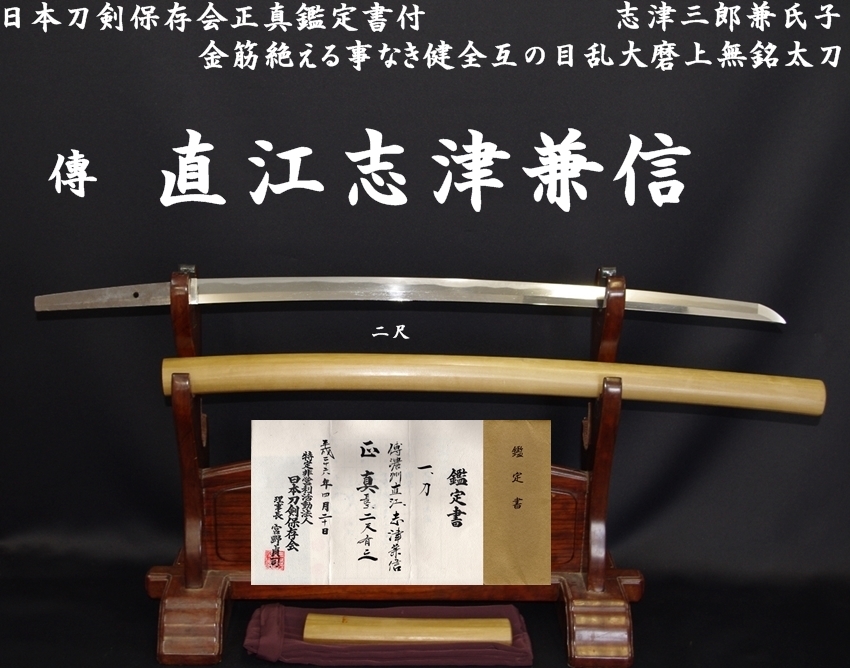 日本刀剣保存会正真鑑定書付
志津三郎兼氏子
金筋絶える事なき健全互の目乱大磨上無銘太刀
傳 直江志津兼信
二尺
鑑定書
鑑定書
一、刀
傳濃州直江志津兼信
正真
長、二尺有之
平成二十六年四月二十日
特定非営利活動法人
日本刀剣保存会
理事長 宮野